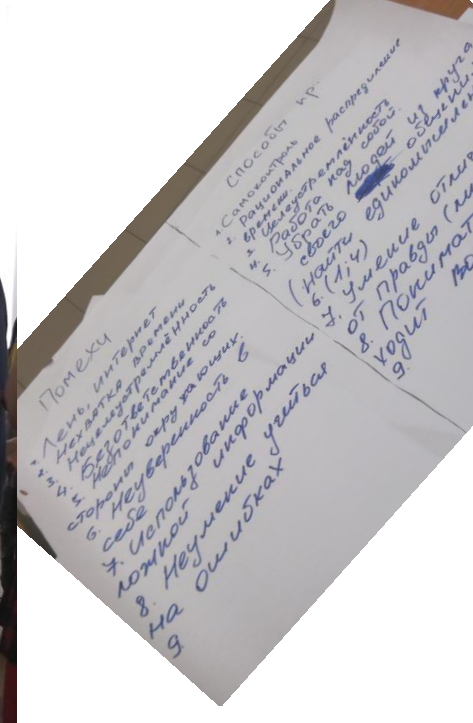 Помехи
1. Лень, интернет
2. Нехватка времени
3. Нецелеустремлённость
4. Безответственность
5. Непонимание со
стороны окружающих.
6. Неуверенность в
себе
7. Использование
ложной информации
8. Неумение учиться
на ошибках
9.
Способы пр.
1. Самоконтроль
2. Рациональное распределение
времени.
3. Целеустремлённость
4. Работа над собой.
5. Убрать людей из круга
своего общения
(найти единомышлен
6. (1; 4)
7. Умение отлич
от правды (
8. Понимат
ходит
9.